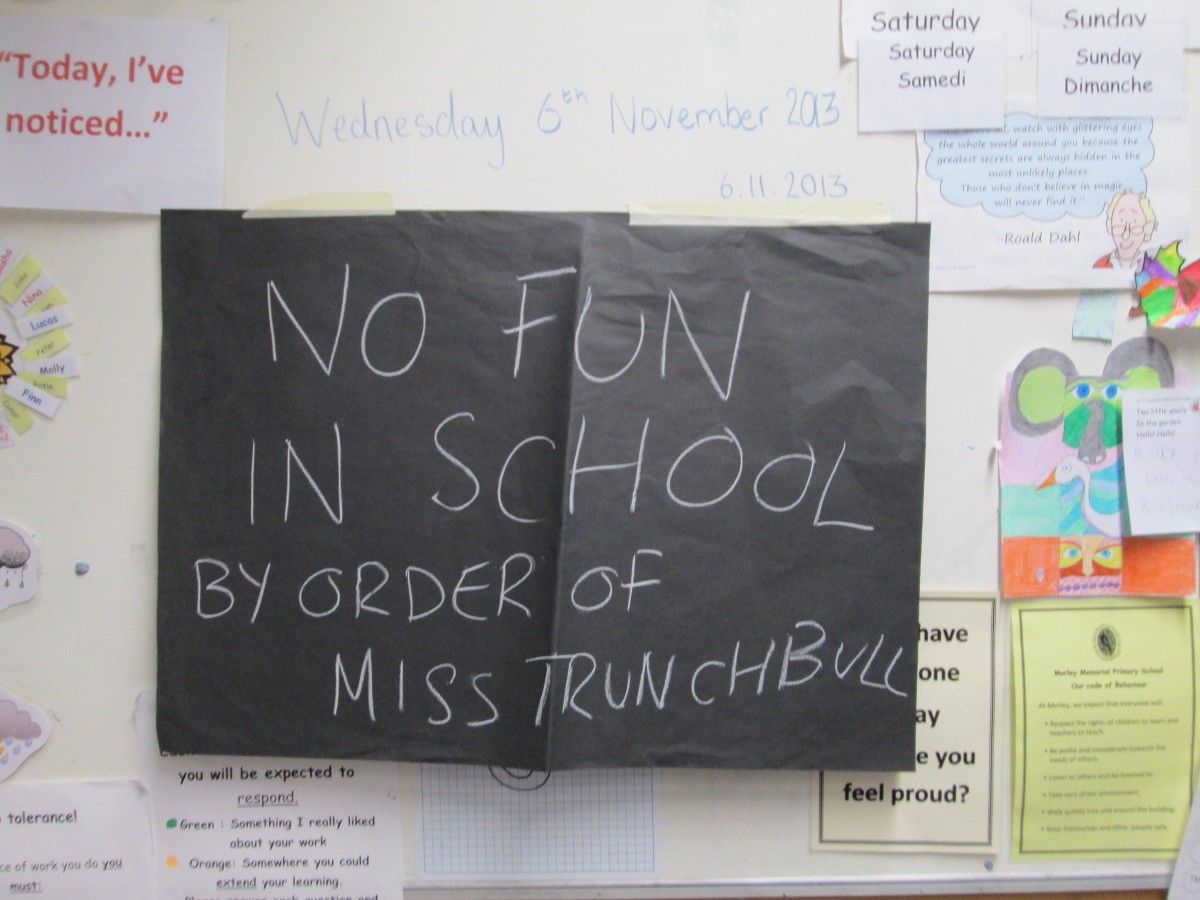 "Today, I've
noticed..."
Wednesday 6th November 2013
6.11.2013
Saturday
Saturday
Samedi
Sunday
Sunday
Dimanche
watch with glittering eyes
the whole world around you because the
greatest secrets are always hidden in the
most unlikely places.
Those who don't believe in magic
will never find it."
-Roald Dahl
NO FUN
IN SCHOOL
BY ORDER OF
MISS TRUNCHBULL
Nina
Lucas
Peter
Molly
Finn
Two little snails
In the garden
Hello! Hello!
have
one
ay
e you
feel proud?
Morley Memorial Primary School
Our code of Behaviour
At Morley, we expect that everyone will:
• Respect the rights of children to learn and
teachers to teach.
• Be polite and considerate towards the
needs of others.
• Listen to others and be listened to.
• Take care of our environment.
• Walk quietly into and around the building.
• Keep themselves and other people safe.
tolerance!
ce of work you do you
must:
you will be expected to
respond.
Green : Something I really liked
about your work
Orange: Somewhere you could
extend your learning.